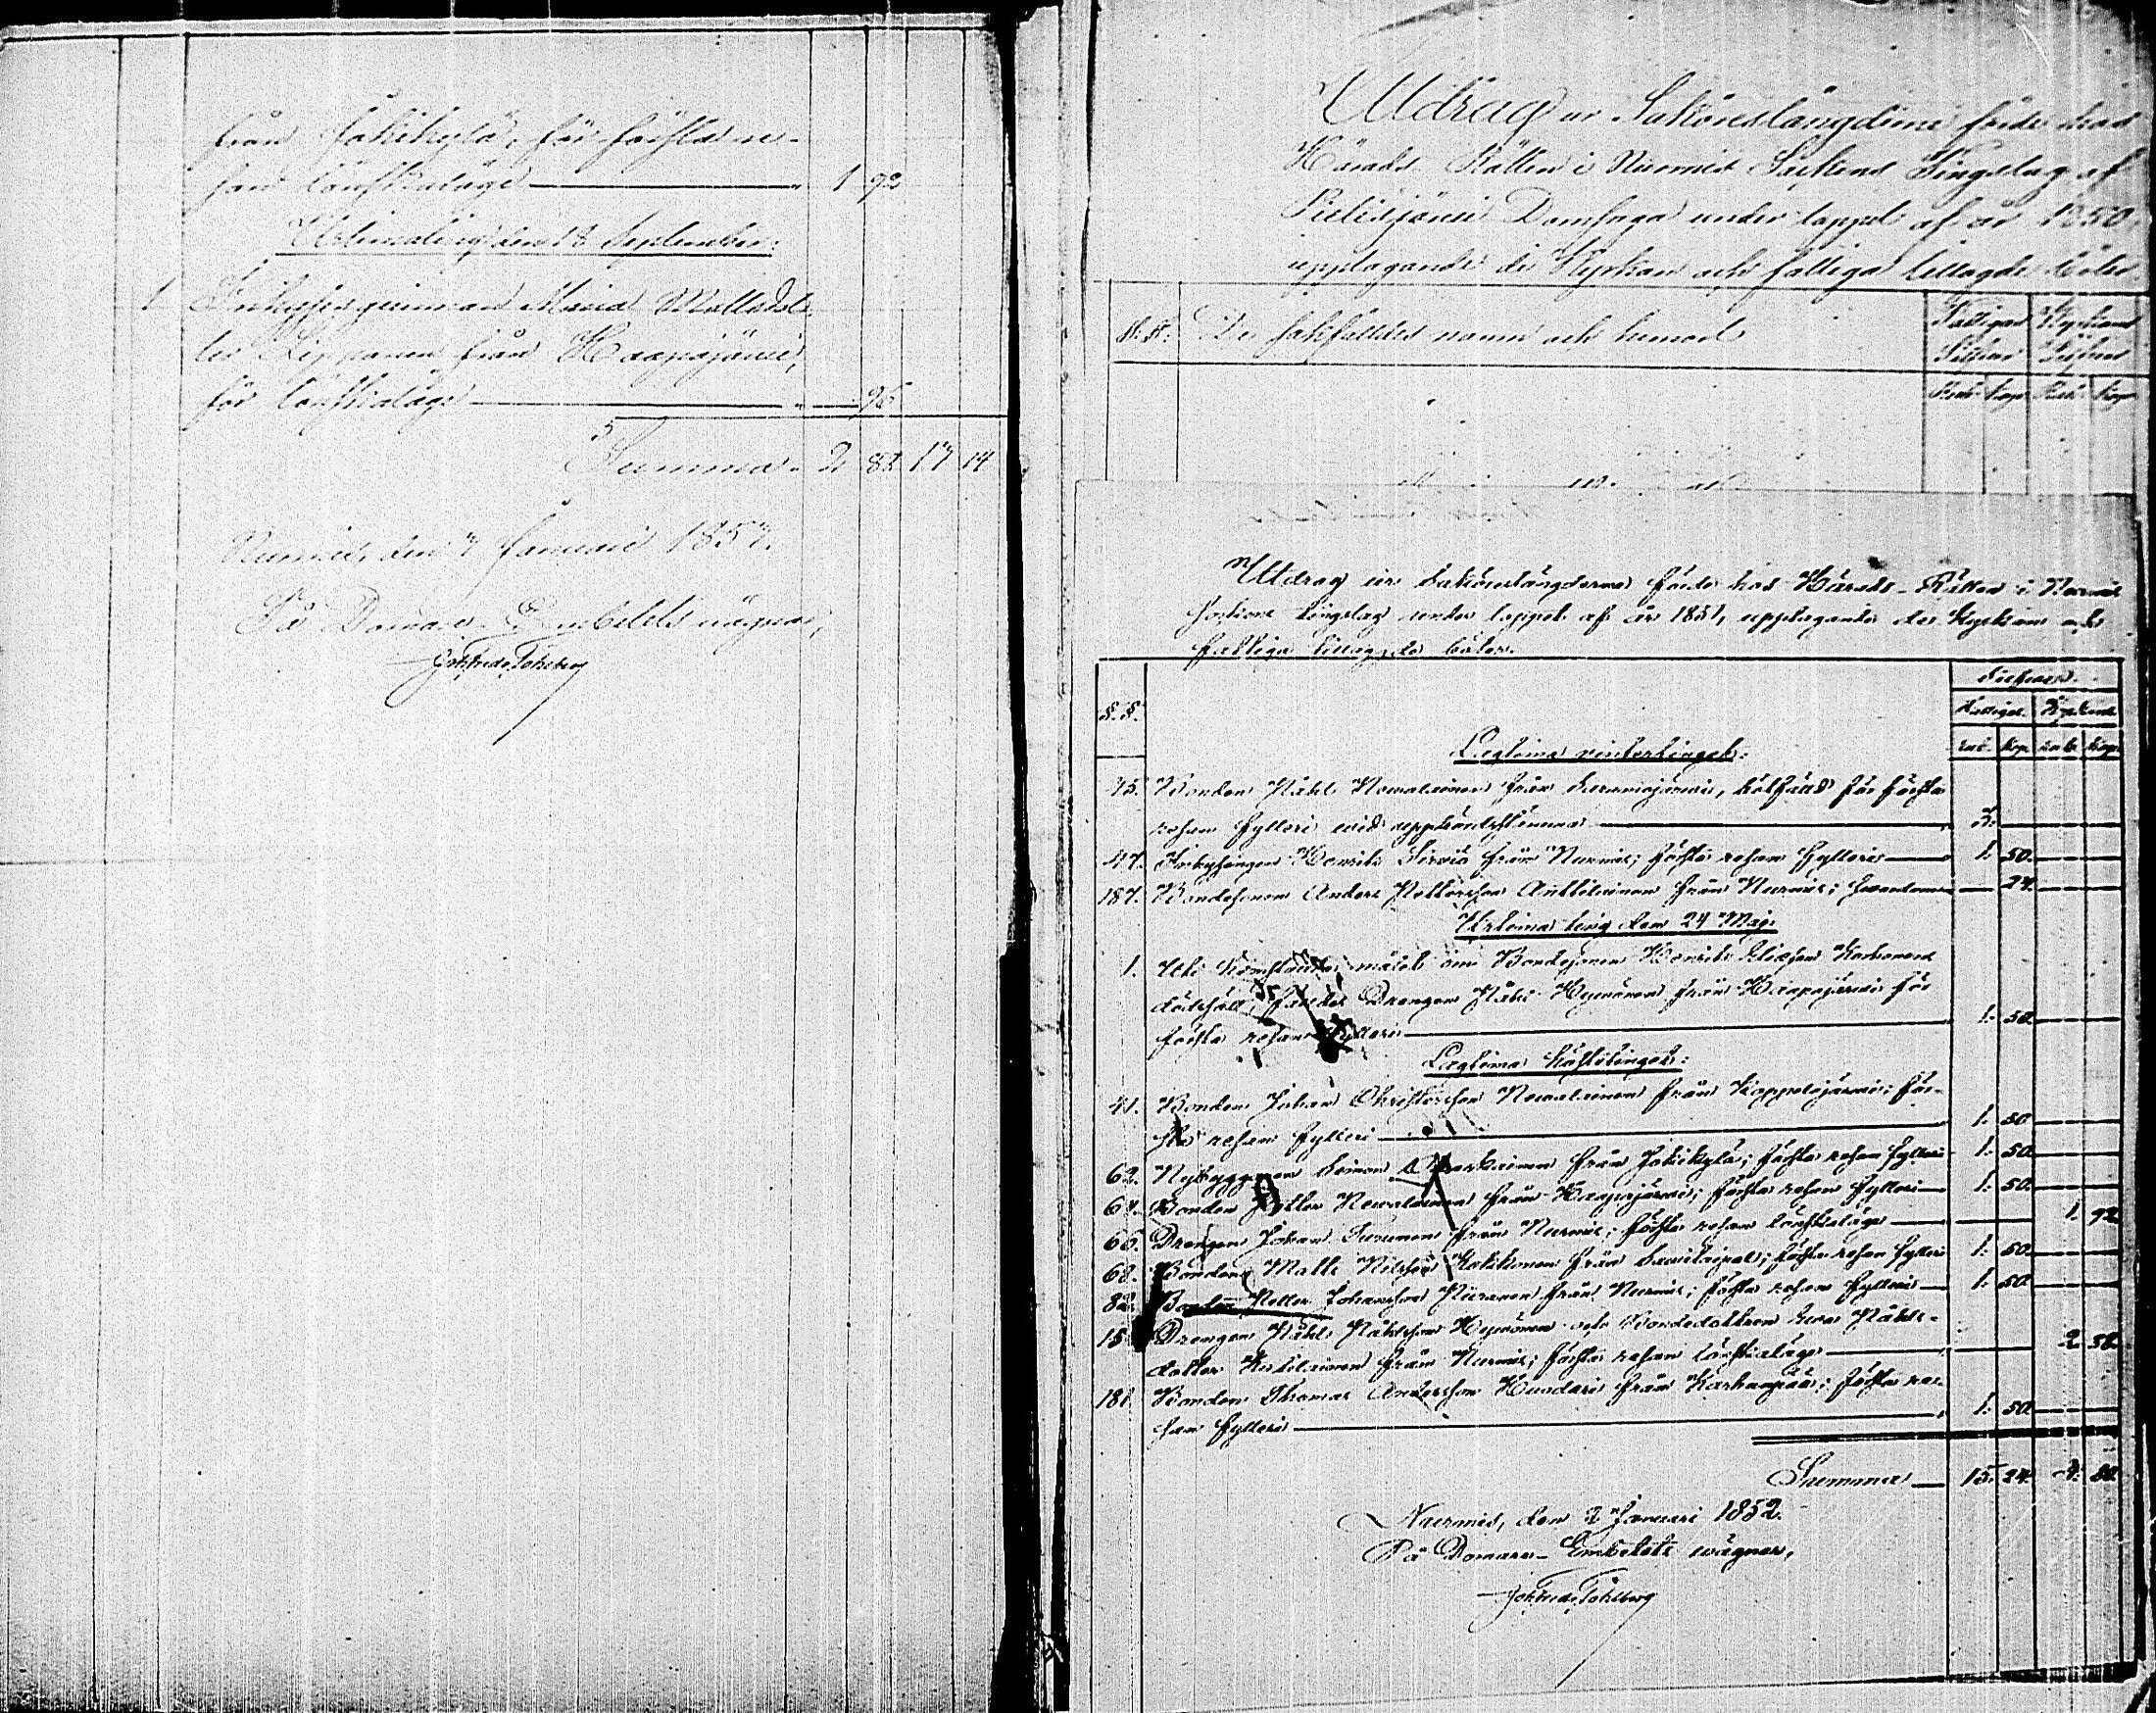 från Jokikylä, för första re-
san lönskaläge — " 1 92
Urtimating den 18 September:
1 Inhysesqvinnan Maria Mattsdot-
ter Kipponen från Haapajärvi,
för lönskaläge — " — 96
Summa " 2 82 17 14
Nurmis, den 7 Januari 1857.
På Domare-Embetets vägnar,
Joh. Fredr. Tohlberg
Utdrag ur Saköreslängderne förde hos
Härads Rätten i Nurmis Sockens Tingslag af
Pielisjärvi Domsaga under loppet af år 1850,
upptagande de Kyrkan och fattiga tillagde böter.
§.§. De sakfälldes namn och hemort
Fattigas Kyrkans
Silfver Silfver
Rub. Kop. Rub. Kop.
Utdrag ur Saköreslängderna förde hos Härads-Rätten i Nurmis
Sockens tingslag under loppet af år 1851, upptagande de Kyrkan och
fattiga tillagde böter.
Silfver.
§.§. Fattigas. Kyrkans
Rub. Kop. Rub. Kop.
Lagtima vintertinget:
45. Bonden Påhl Nevalainen från , bötfäld för första
resan fylleri vid — 3. —
47. Inhysingen Henrik Sirviö från Nurmis; första resan fylleri — 1. 50. —
187. Bondesonen Anders Pettersson Anttilainen från Nurmis; — 24. —
Urtima ting den 24 Maj:
1. Uti målet om Bondesonen Henrik Eliasson Korhonens
dödssätt, fäldes Drengen Påhl Heiönen från Haapajärvi för
första resan fylleri — 1. 50. —
Lagtima hösttinget:
41. Bonden Johan Christersson Nevalainen från Höppelsjärvi; för-
sta resan fylleri — 1. 50 —
62. Nybyggaren Simon från Jokikylä; första resan fylleri 1. 50. —
64. Bonden Petter Nevalainen från Haapajärvi; första resan fylleri — 1. 50. —
66. Drengen Johan Turunen från Nurmis; första resan lönskaläge — 1. 92
68. Bonden Matts Nilsson från ; första resan fylleri 1. 50. —
82. Bonden Petter Johansson Piironen från Nurmis; första resan fylleri — 1. 50. —
15 Drengen Påhl Påhlsson Heiönen och Bondedottren Påhls-
dotter från Nurmis; första resan lönskaläge — 2. 88.
181 Bonden Thomas Andersson Huodari från Karhunpää; första re-
san fylleri — 1. 50. —
Summa — 15. 24. 4. 80.
Nurmis, den 2 Januari 1852.
På Domare-Embetets vägnar,
Joh. Fredr. Tohlberg